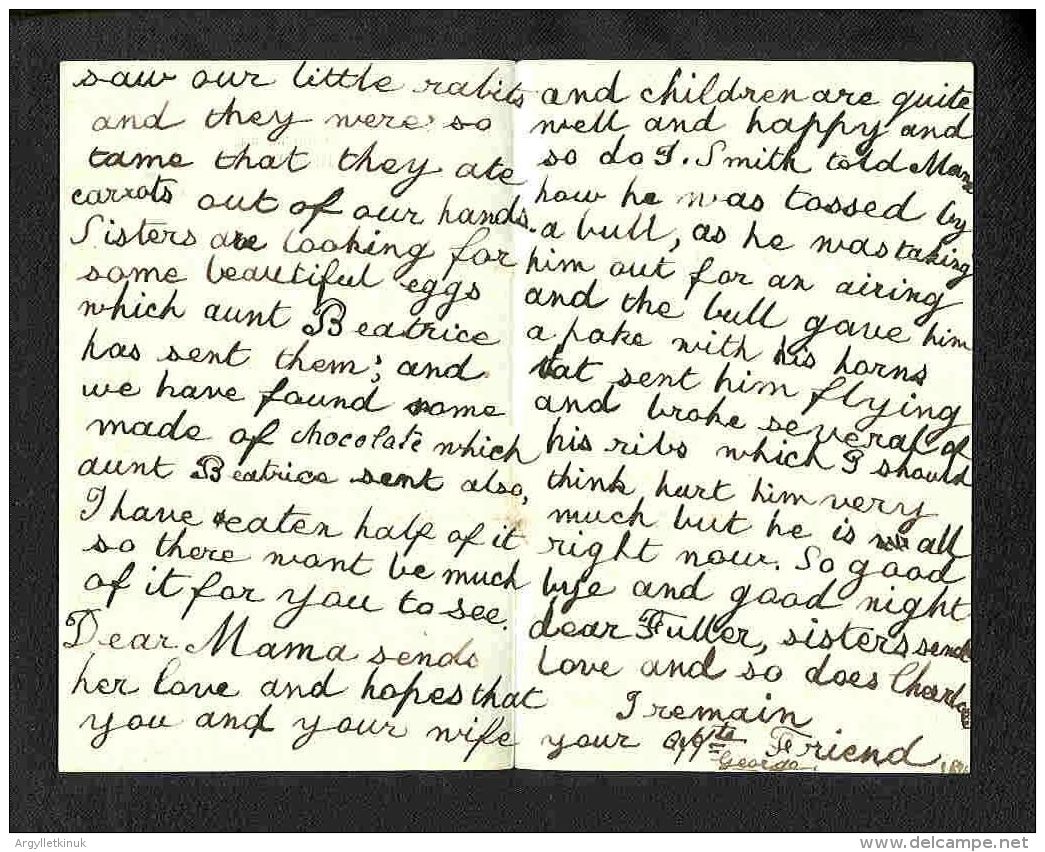 saw our little rabits
and they were so
tame that they ate
carrots out of our hands.
Sisters are looking for
some beautiful eggs
which aunt Beatrice
has sent them; and
we have found some
made of chocolate which
aunt Beatrice sent also,
I have eaten half of it
so there wont be much
of it for you to see.
Dear Mama sends
her love and hopes that
you and your wife
and children are quite
well and happy and
so do I. Smith told
how he was tossed by
a bull, as he was taking
him out for an airing
and the bull gave him
a poke with his horns
tat sent him flying
and broke several of
his ribs which I should
think hurt him very
much but he is all
right now. So good
bye and good night
dear Fuller, sisters send
love and so does
I remain
your affte Friend
George.
Argylletkinuk
www.delcampe.net